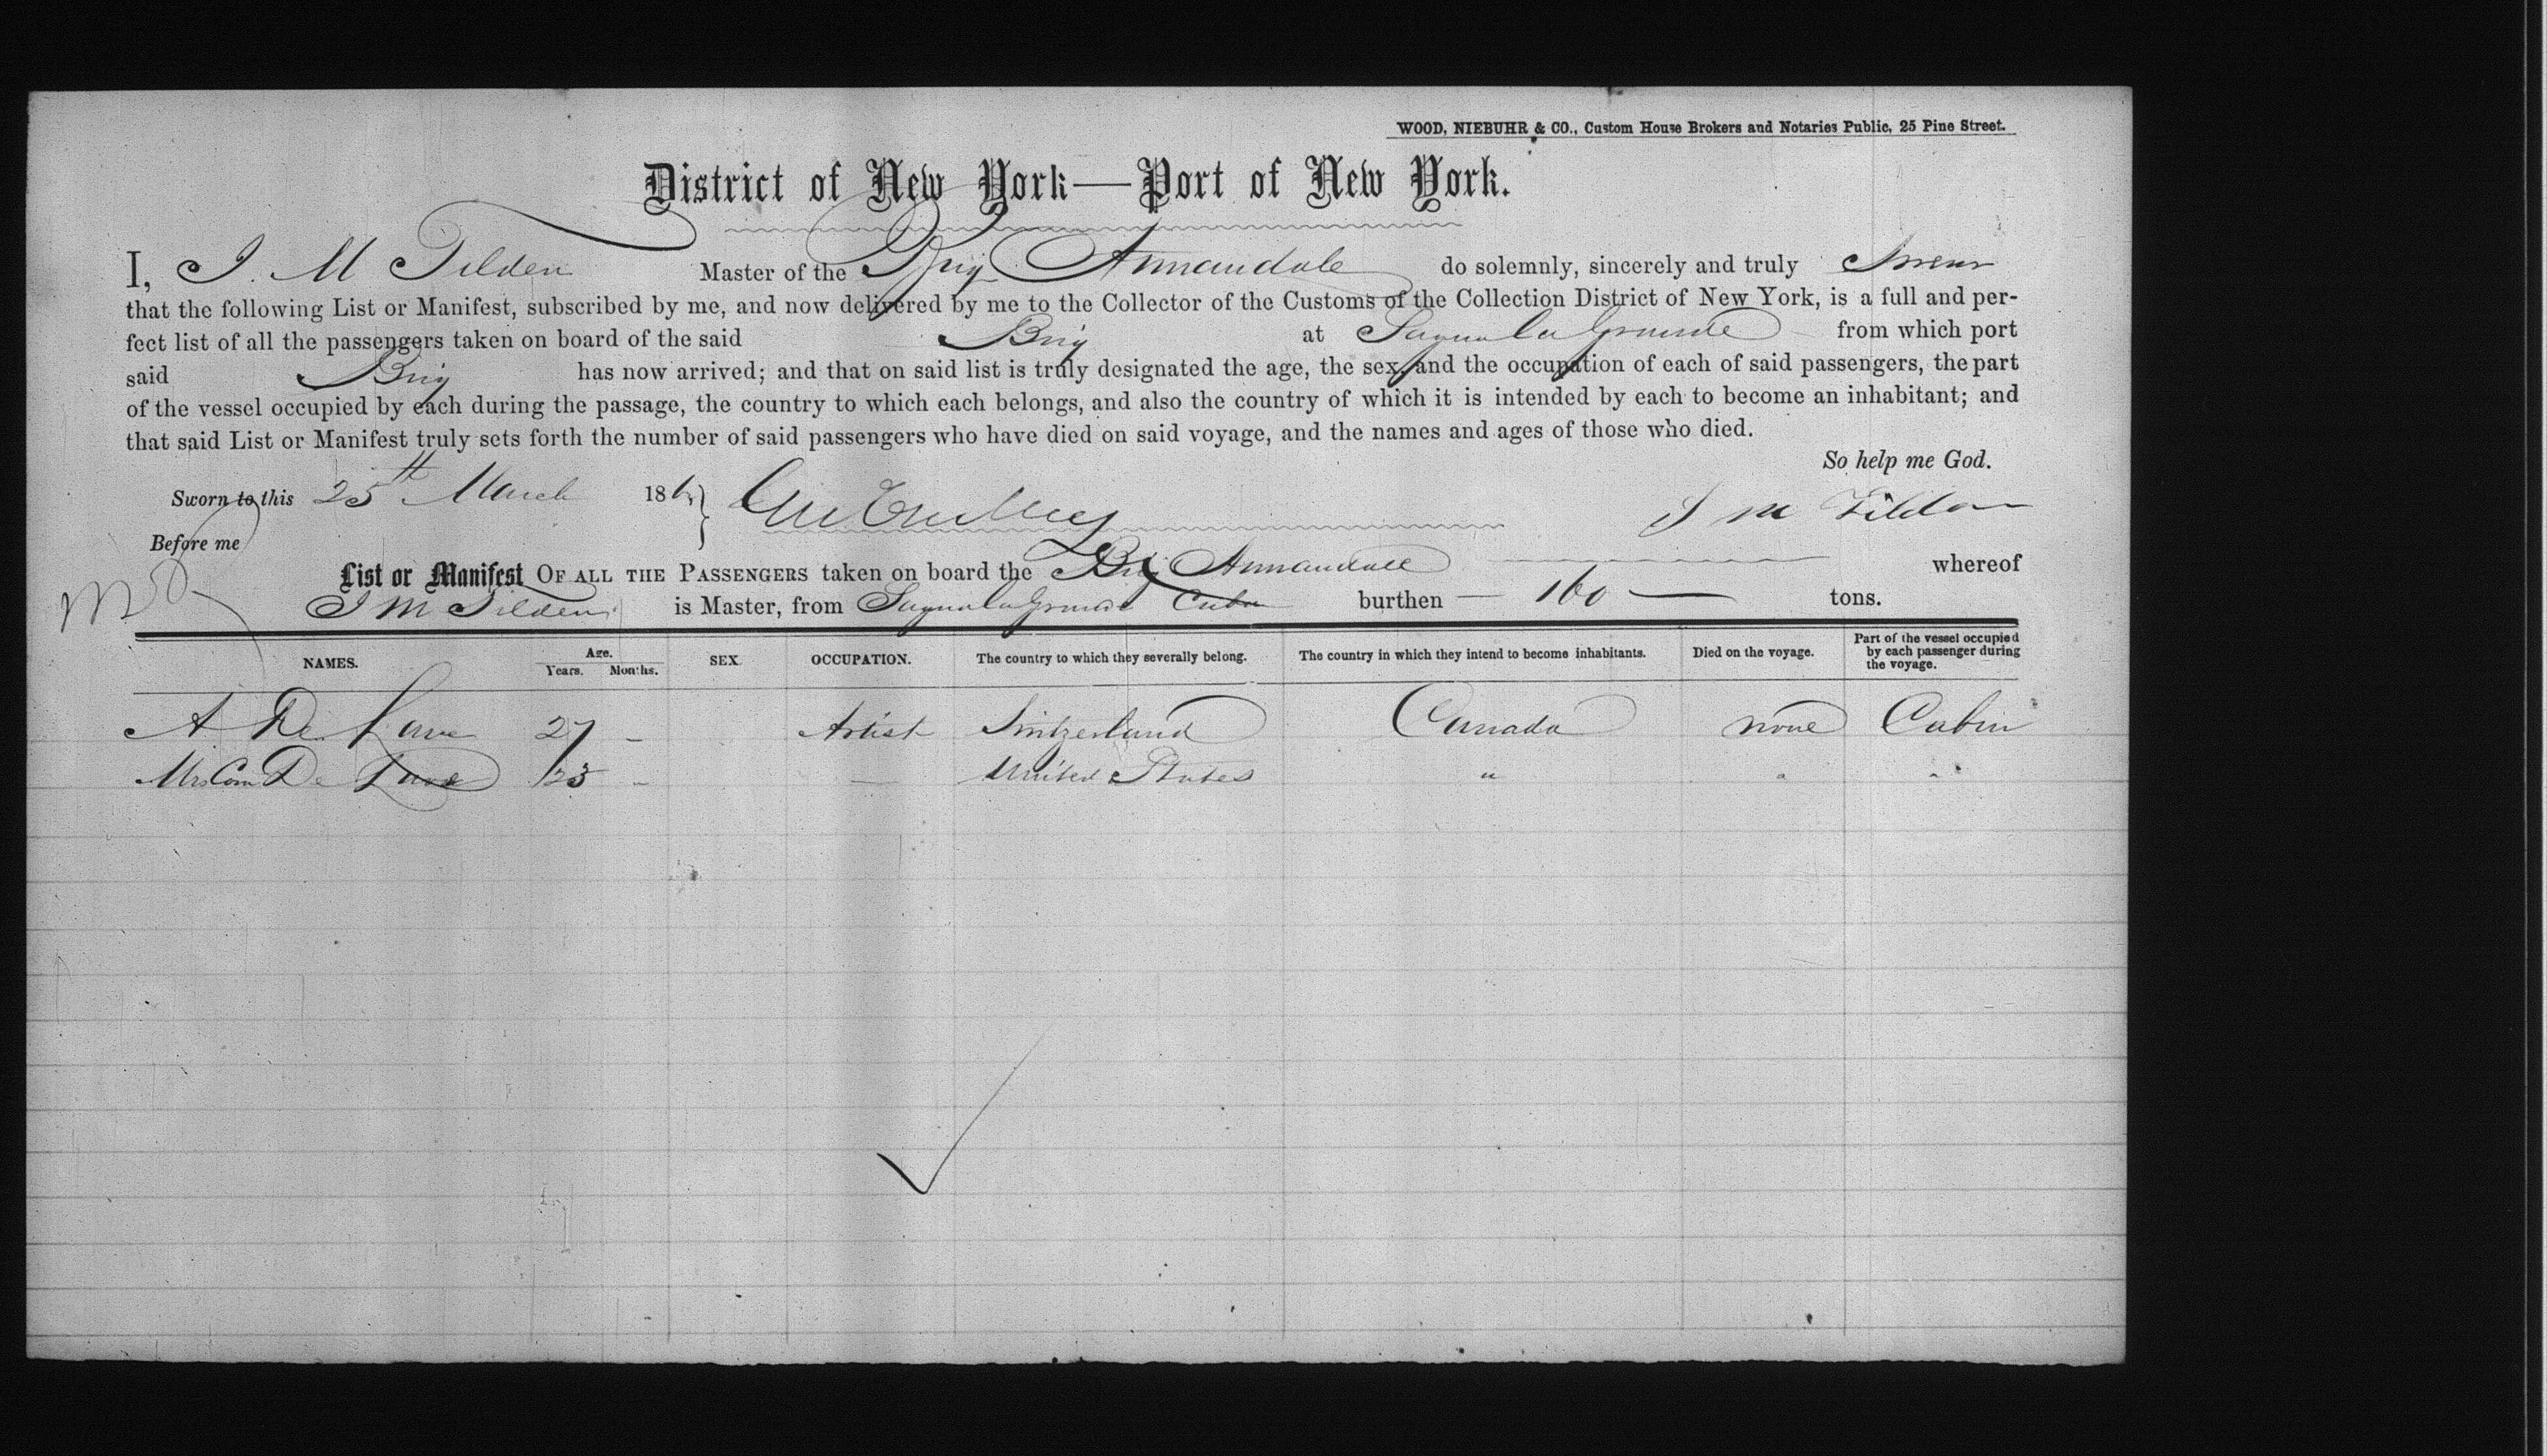 WOOD, NIEBUHR & CO., Custom House Brokers and Notaries Public, 25 Pine Street.
District of New York—Port of New York.
I, J. M Tilden Master of the Brig Annandale do solemnly, sincerely and truly Swear
that the following List or Manifest, subscribed by me, and now delivered by me to the Collector of the Customs of the Collection District of New York, is a full and per-
fect list of all the passengers taken on board of the said Brig at Sagua La Grande from which port
said Brig has now arrived; and that on said list is truly designated the age, the sex, and the occupation of each of said passengers, the part
of the vessel occupied by each during the passage, the country to which each belongs, and also the country of which it is intended by each to become an inhabitant; and
that said List or Manifest truly sets forth the number of said passengers who have died on said voyage, and the names and ages of those who died.
So help me God.
Sworn to this 25th March 186 J M Tilden
Before me
List or Manifest OF ALL THE PASSENGERS taken on board the Brig Annandale whereof
J M Tilden is Master, from Sagua La Grande Cuba burthen — 160 — tons.
NAMES. Age. Years. Months. SEX. OCCUPATION. The country to which they severally belong. The country in which they intend to become inhabitants. Died on the voyage. Part of the vessel occupied by each passenger during the voyage.
A De 27 - Artist Switzerland Canada none Cabin
Mrs De 23 - — United States " " "